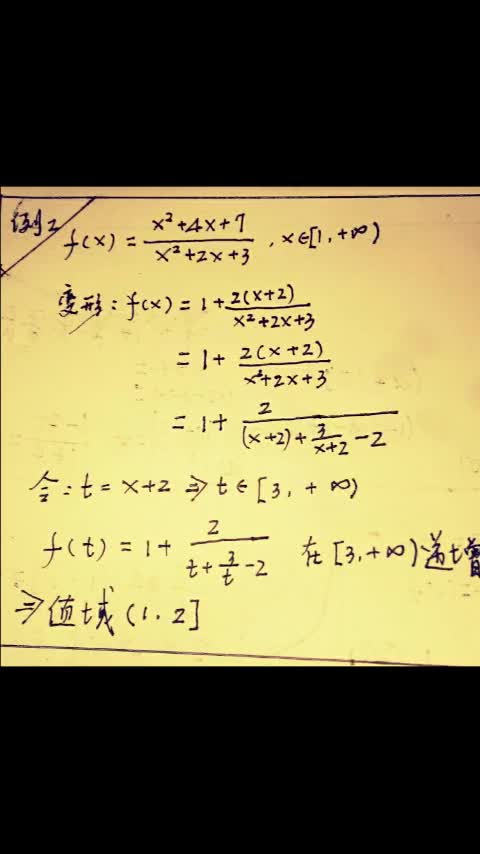 例2
f(x) = (x²+4x+7)/(x²+2x+3) , x∈[1, +∞)
变形: f(x) = 1 + 2(x+2)/(x²+2x+3)
= 1 + 2(x+2)/(x²+2x+3)
= 1 + 2/((x+2) + 3/(x+2) - 2)
令: t = x+2 ⇒ t∈[3, +∞)
f(t) = 1 + 2/(t + 3/t - 2) 在 [3, +∞) 递增
⇒ 值域 (1, 2]